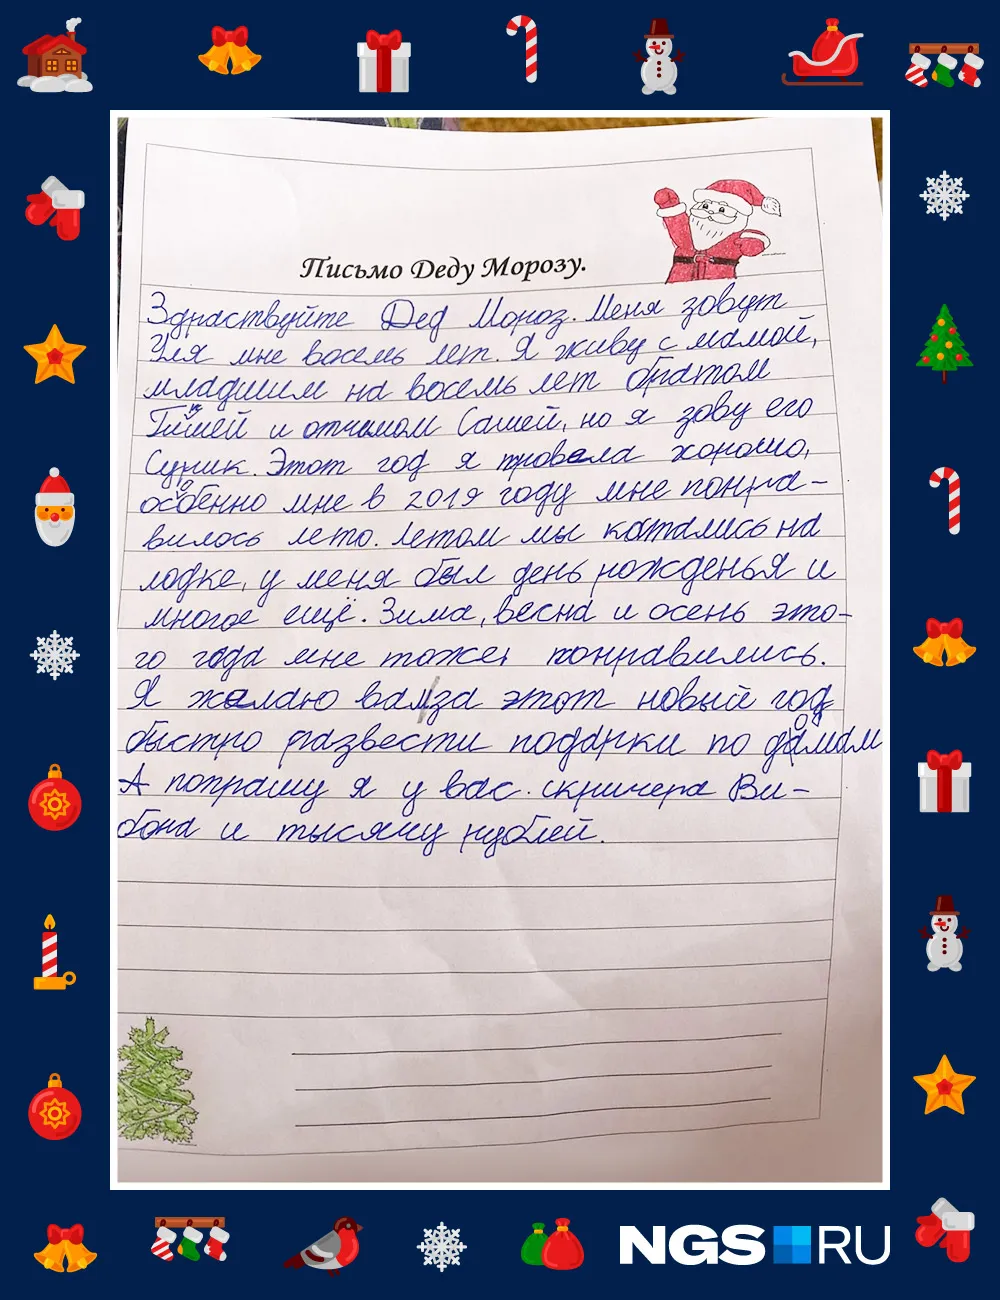 Письмо Деду Морозу.
Здраствуйте Дед Мороз. Меня зовут
Уля мне восемь лет. Я живу с мамой,
младшим на восемь лет братом
и отчимом Сашей, но я зову его
Сушик. Этот год я провела хорошо,
особенно мне в 2019 году мне понра-
вилось лето. Летом мы катались на
лодке, у меня был день рожденья и
многое ещё. Зима, весна и осень это-
го года мне тоже понравились.
Я желаю вам за этот новый год
быстро развести подарки по домам
А попрашу я у вас скричера Ви-
бона и тысячу рублей.
NGS RU